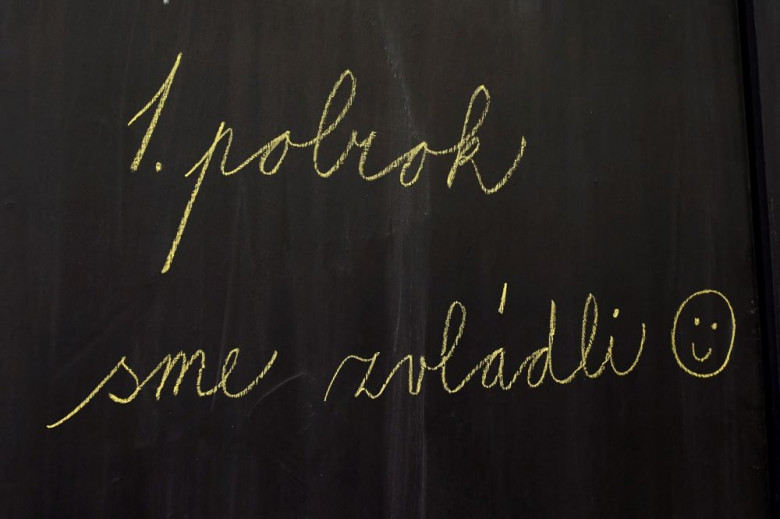 1. polrok
sme zvládli ☺